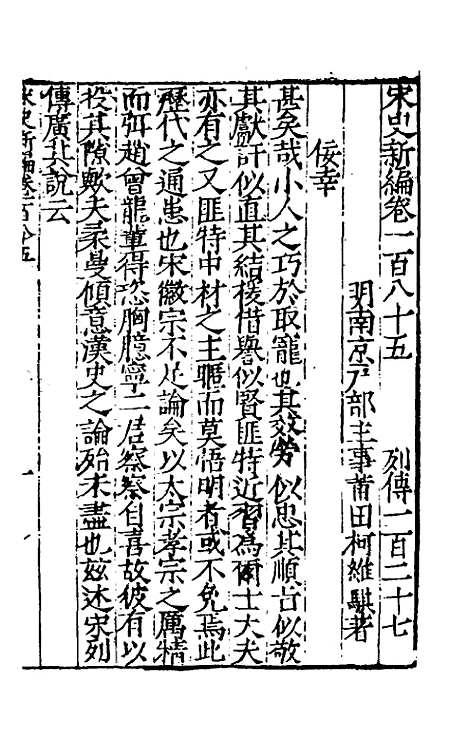 宋史新編卷一百八十五 列傳一百二十七
明南京戸部主事莆田柯維騏著
佞幸
甚矣哉小人之巧於取寵也其效勞似忠其順占似敬
其獻訐似直其結援借譽似賢匪特近習為爾士大夫
亦有之又匪特中材之主暱而莫悟明者或不免焉此
歷代之通患也宋徽宗不足論矣以太宗孝宗之厲精
而弭趙曾龍輩得恣胸臆寧二君察察自喜故彼有以
投其隙歟夫柔曼傾意漢史之論殆未盡也玆述宋列
傳廣其說云
宋史新編卷一百八十五 一